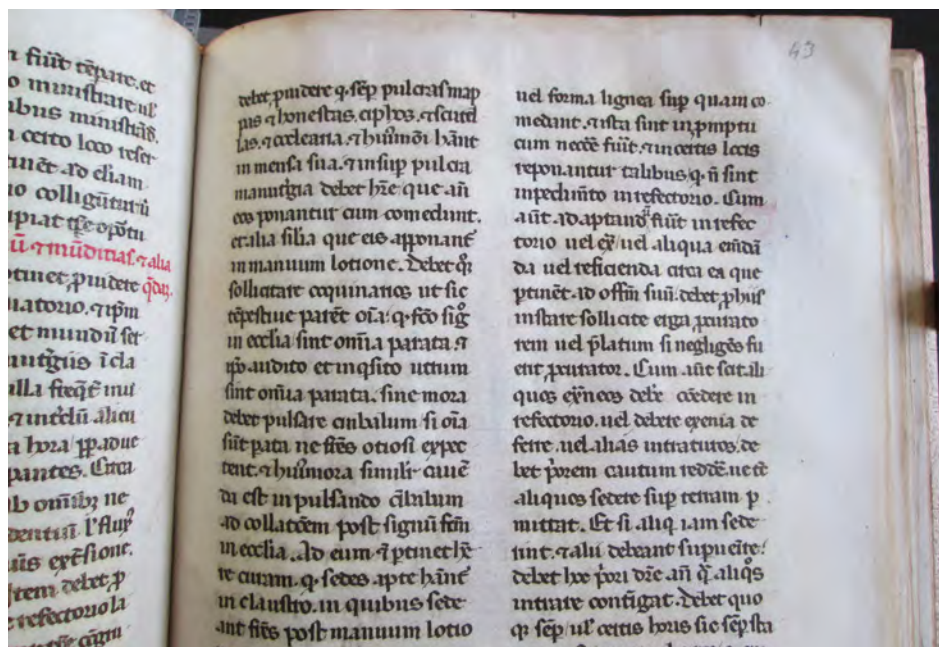 n fiūt tēpare. et
o ministrare ul'
ibus ministrās.
n certo loco reser
tinēt ad eliam
no colligūtur ū
ipiat ip̄e opōtu
ū. ⁊ mūditias. ⁊ alia
ptinet ꝓuidere q̄dā.
et mundū ser
illa
a hora
pantes. Circa
ab omībꝫ ne
tem debet ꝓ
refectorio la
43
debet ꝓuidere ꝙ sēp pulcras map
pas ⁊ honestas. ciphos. ⁊ scutel
las. ⁊ coclearia. ⁊ huiꝰmōi hānt
in mensa sua. ⁊ insup pulcra
manut̄gia debet hīe que añ
eos ponantur cum comedunt.
et alia silia que eis apponant̄
in manuum lotione. Debet qͦꝫ
sollicitare coquinarios ut sic
tēpestiue parēt oīa. ꝙ fc̄o sigͦ
in eccl̄ia sint om̄ia parata. ⁊
ip̄o audito et inq̄sito utrum
sint om̄ia parata. sine mora
debet pulsare cimbalum si oīa
sūt pata ne fr̄es otiosi expec
tent. ⁊ huiꝰ mora simil'r cauē
da est in pulsando cībalum
ad collatōem post signū fc̄m
in eccl̄ia. Ad eum ⁊ ptinet hē
re curam. ꝙ sedes apte hānt̄
in claustro. in quibus sede
ant fr̄es post manuum lotio
uel forma lignea sup quam co
medant. ⁊ ista sint in ꝓmptu
cum necc̄e fūit. ⁊ in certis locis
reponantur talibus. ꝙ ñ sint
inpedimīto in refectorio. Cum
aūt. ad aptandū fiūt in refec
torio uel ex̄ uel aliqua emēdā
da uel reficienda circa ea que
ptinēt ad offm̄ suū. debet ꝓ huiꝰ
instare sollicite erga ꝓcurato
rem uel p̄latum si negligēs fu
erit ꝓcurator. Cum aūt scit ali
quos ex̄neos deb'e cōedere in
refectorio. uel debere exenia de
ferre. uel alias intraturos. de
bet p̄orem cautum redde. ne
aliquos sedere sup terram ꝑ
mittat. Et si aliq iam sede
rint. ⁊ alii debeant supueīre.
debet hoc p̄ori dīe añ q̄ aliqͦs
intrare contigat. Debet quo
qꝫ sēp ul' certis horis sic sēp sta